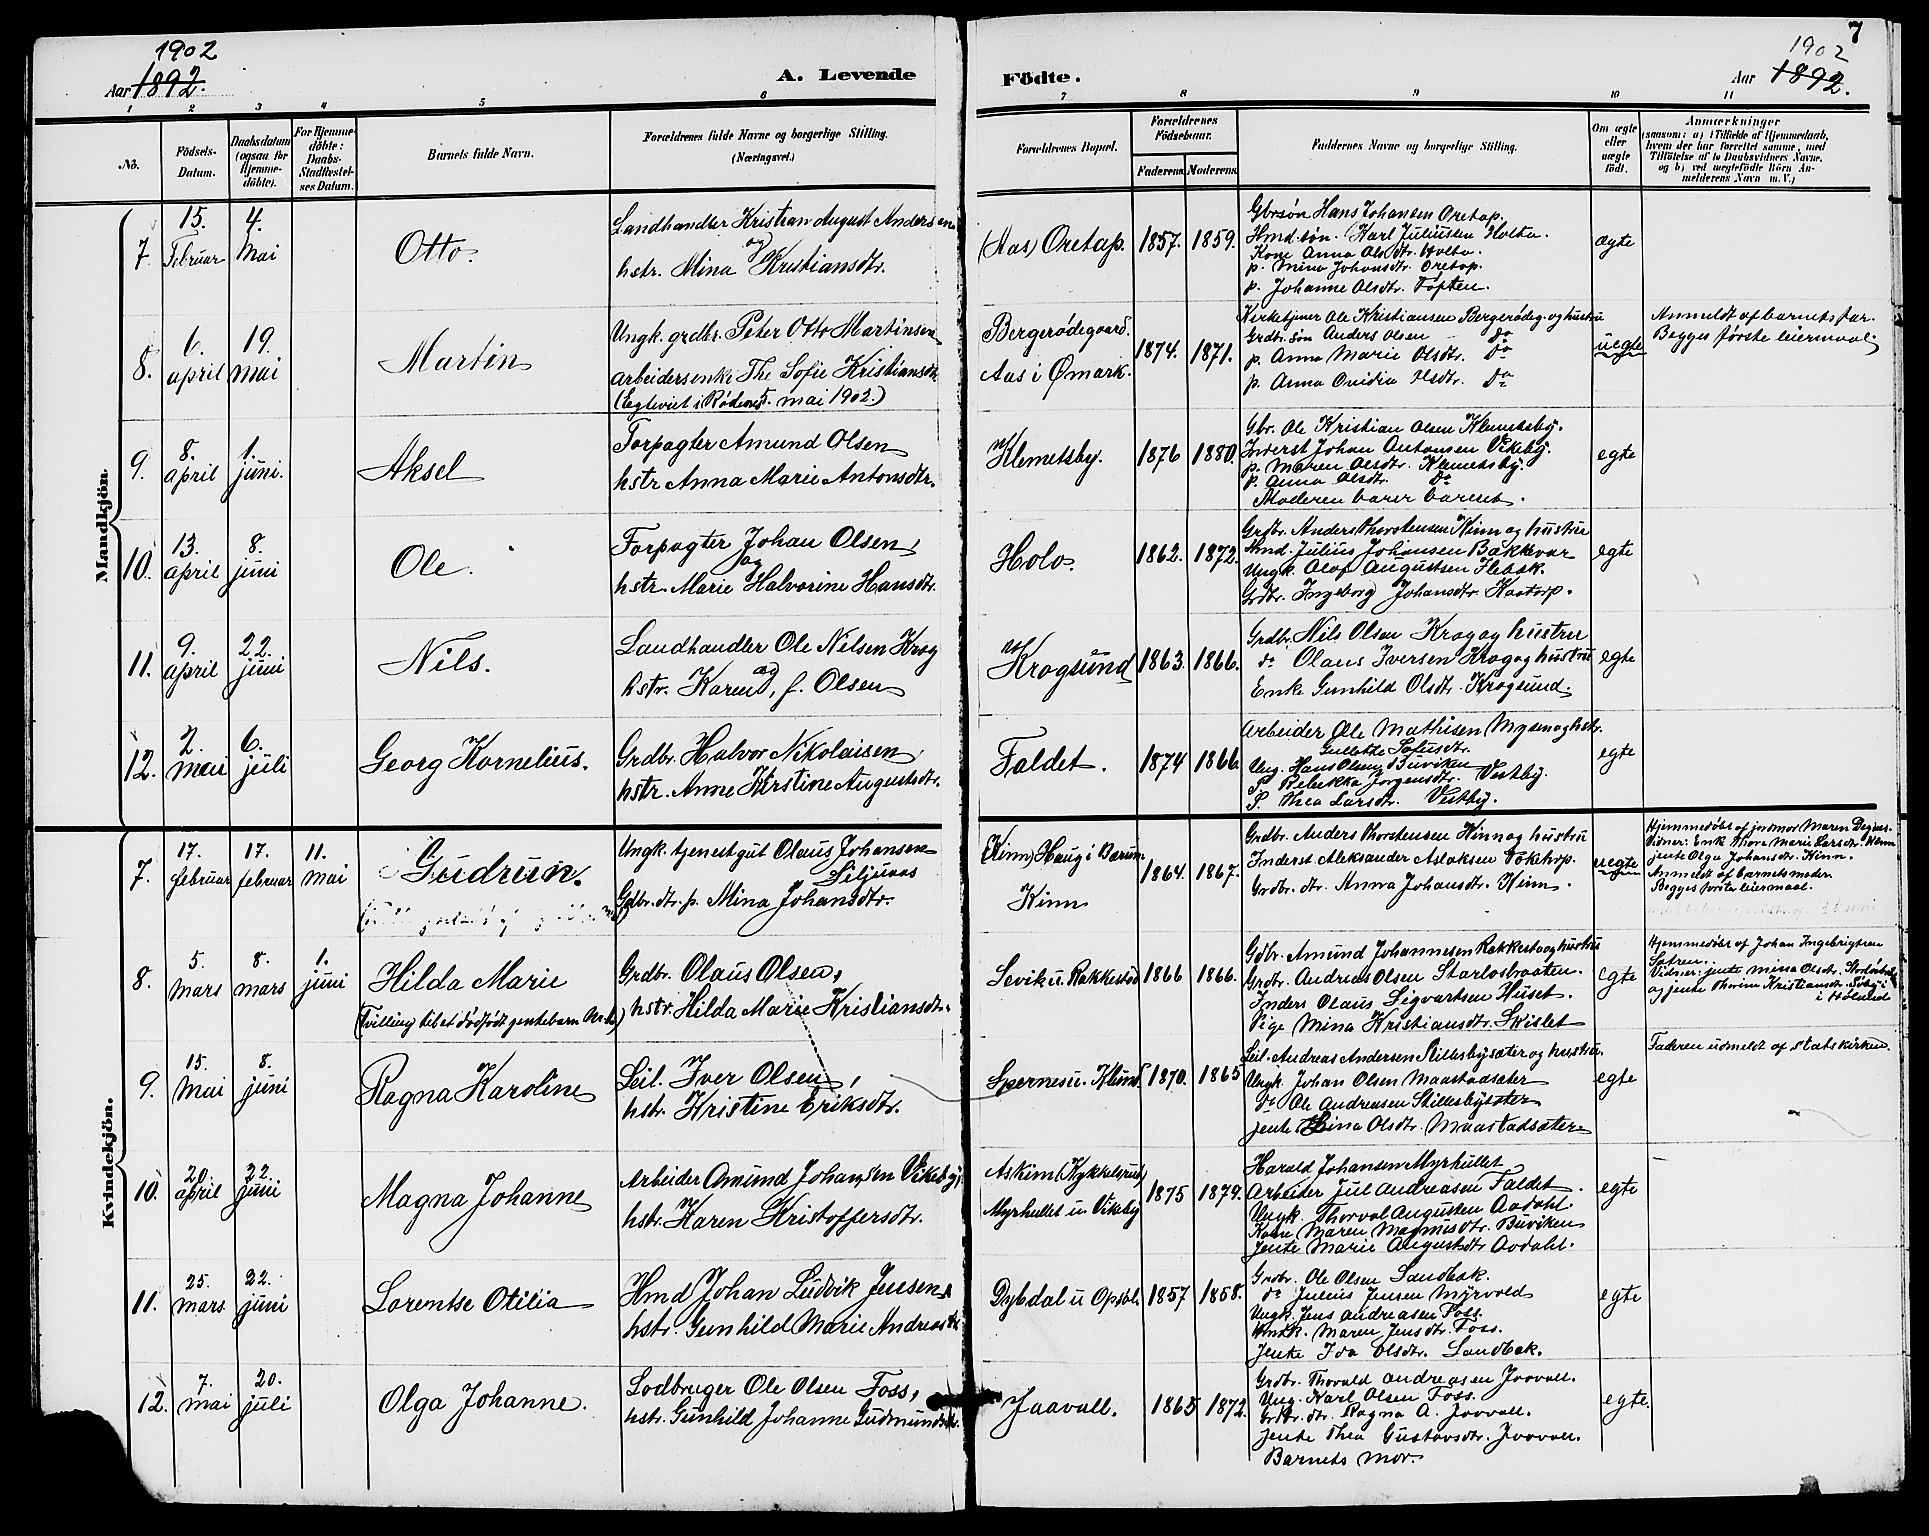 7
1902
Aar 1892.
A. Levende
Födte.
1902
Aar 1892.
1 2 3 4 5 6 7 8 9 10 11
No.
Födsels-Datum.
Daabsdatum (ogsaa for Hjemme-döbte).
For Hjemme-döbte: Daabs-Stadfæstel-ses Datum.
Barnets fulde Navn.
Forældrenes fulde Navne og borgerlige Stilling.
(Næringsvei.)
Forældrenes Bopæl.
Forældrenes Födselsaar.
Faderens. Moderens.
Faddernes Navne og borgerlige Stilling.
Om ægte eller uægte födt.
Anmærkninger
(saasom: a) i Tilfælde af Hjemmedaab, hvem der har forrettet samme, med Tilföielse af to Daabsvidners Navne, og b) ved uegtefödte Börn Anmelderens Navn m. V.)
Mandkjön.
7. 15. Februar 4. Mai
Otto.
Landhandler Kristian August Andersen
og
hstr. Mina Kristiansdtr.
(Aas) Oretap. 1857. 1859.
Gbrsøn Hans Johansen Oretop.
Hmd.søn. Karl Juliussen Holta.
Kone Anna Olsdtr. Holta.
p. Mina Johansdtr. Oretop.
p. Johanne Olsdtr. Toften.
ægte
8. 6. april 19. mai
Martin
Ungk. grdbr. Peter Otto Martinsen
Arbeidersenke The Sofie Kristiansdtr.
(Egteviet i Rødenes 5. mai 1902.)
Bergerødegaard.
Aas i Ømark.
1874. 1871.
Kirketjener Ole Kristiansen Bergerødeg. og hustru
Grdbr. søn Anders Olsen do
p. Anna Marie Olsdtr. do
p. Anna Ovidia Olsdtr. do
uegte
Anmeldt af barnets far.
Begges første leiermaal.
9. 8. april 1. juni.
Aksel
Forpagter Amund Olsen
hstr Anna Marie Antonsdtr.
Klemetsby. 1876 1880.
Gbr. Ole Kristian Olsen Klemetsby.
Inderst Johan Antonsen Vikeby.
p. Maren Olsdtr. Klemetsby.
p. Anna Olsdtr. do
Moderen barer barnet.
egte
10. 13. april 8. juni
Ole.
Forpagter Johan Olsen
og
hstr. Marie Halvorine Hansdtr.
Holo. 1862. 1872.
Grdbr. Anders Thorstensen Kinn og hustru
Hmd. Julius Johansen Bakkevar
Ungk. Olof Augustsen Flebak.
Grdbr. Ingeborg Johansdtr. Kaatorp.
egte
11. 9. april 22. juni
Nils.
Landhandler Ole Nilsen Krog
og
hstr. Karen, f. Olsen
Krogsund 1863. 1866.
Grdbr. Nils Olsen Krog og hustru
do Olaus Iversen Krog og hustru
Enke Gunhild Olsdtr. Krogsund.
egte
12. 2. mai 6. juli
Georg Kornelius.
Grdbr. Halvor Nikolaisen,
hstr. Anne Kirstine Augustsdtr.
Faldet. 1874 1866.
Arbeider Ole Mathisen Mysen og hstr.
Gulette Sofusdtr.
Ung. Hans Olsen Buviken
P. Rebekka Jørgensdtr. Vestby.
P. Thea Larsdtr. Vestby.
egte
Kvindekjön.
7. 17. februar 17. februar 11. mai
Gudrun.
Ungk. tjenestgut Olaus Johansen
Liljuaas
Gdbr.dtr. p. Mina Johansdtr.
(Kinn) Haug i Bærum
Kinn
1864. 1867.
Grdbr. Anders Thorstensen Kinn og hustru
Inderst Aleksander Aslaksen Toktorp.
Grdbr. dtr. Anna Johansdtr. Kinn.
uegte
Hjemmedøbt af jordmor Maren
Vidner: Enk. Thora Marie Larsdtr. Kinn
jente Olga Johansdtr. Kinn.
Anmeldt af barnets moder.
Begges første leiermaal.
8. 5. mars 8. mars 1. juni
Hilda Marie
(Tvilling til et dødfødt pentebarn No. )
Grdbr. Olaus Olsen,
hstr. Hilda Marie Kristiansdtr.
Sevik u. Rakkestad 1866 1866.
Gdbr. Amund Johannesen Rakkestad og hustru
Grdbr. Andreas Olsen Starlosbraaten.
Inders Olaus Sigvartsen Huset.
Pige Mina Kristiansdtr. Skislet
egte
Hjemmedøbt af Johan Ingebrigtsen
Vidner: jente Mina Olsdtr.
og jente Thorine Kristiansdtr.
i Høland
9. 15. Mai 8. juni
Ragna Karoline
Seil. Iver Olsen,
hstr. Kristine Eriksdtr.
Spernesu. Klund. 1870. 1865
Seil. Andreas Andersen Stillesbysæter og hustru.
Ungk. Johan Olsen Maastadsæter
do Ole Andreasen Stillesbysæter
Jente Lina Olsdtr. Maastadsæter
egte
Faderen udmeldt af statskirken.
10. 20. april 22. juni
Magna Johanne
Arbeider Amund Johansen Vikeby,
hstr. Karen Kristoffersdtr.
Askim (Kykkelsrud)
Myrhullet u Vikeby
1875 1879.
Harald Johansen Myrhullet
Arbeider Jul Andreasen Faldet.
Ungk. Thorval Augusten Aadahl.
Kone Maren Magnusdtr. Buviken
Jente Marie Augustsdtr. Aodahl.
egte
11. 25. mars 22. juni
Lorentse Otilia
Hmd Johan Ludvik Jensen
hstr. Gunhild Marie Andreasdtr
Dybdal u Opsal. 1857 1858.
Grdbr. Ole Olsen Sandbak.
do Julius Jensen Myrvold
Ungk. Jens Andreasen Foss.
Maren Jensdtr. Foss.
Jente Ida Olsdtr. Sandbak.
egte
12. 7. mai 20. juli
Olga Johanne.
Lodbruger Ole Olsen Foss,
hstr. Gunhild Johanne Gudmundsdtr.
Jaavall. 1865 1872.
Grdbr. Thorvald Andreasen Jaavall.
Ung. Karl Olsen Foss.
Grdbr. dtr. Ragna A. Jaavall.
Jente Thea Gustavsdtr. Jaavall.
Barnets mor.
egte.